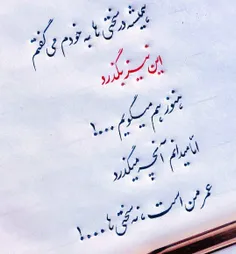 همیشه در سختی ها به خودم می گفتم
این نیز بگذرد
هنوز هم میگویم ....!
اما میدانم آنچه میگذرد
عمر من است ، نه سختی ها ....!